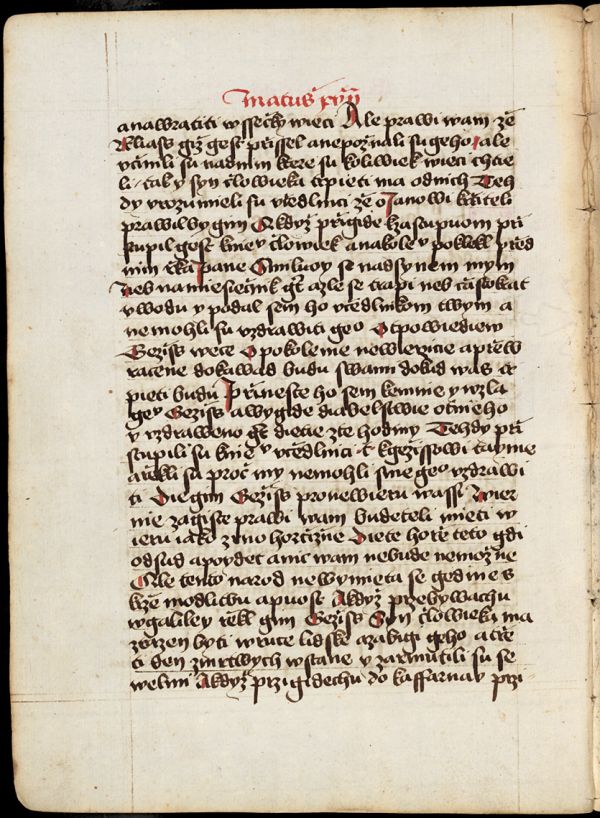 matus xvii
anawratiti wssečky wieci Ale prawi wam ze
Eliass giž gest přissel anepoznali su geho ale
včinili su nadnim kere su koliwiek wieci chtie
li tak y syn člowieka trpieti ma odnich Teh
dy vrozumieli su včedlnici že o Janowi křtiteli
prawil by gim Akdyž přigide kzastupuom při
stupil gest knie člowiek anakole poklekl před
nim řka pane Smiluoy se nadsynem mym
neb namiesiečnik gt azle se trapi neb častokrat
vwodu y podal sem ho včedlnikom twym a
nemohli su vzdrawiti geo Otpowiediew
Gežiss wece O pokolenie newierzicie apřew
racene dokawad budu swami dokud was tr
pieti budu Přineste ho sem kemnie y wzla
ge Gežiss awygide diabelstwie otnieho
y vzdraweno gt dietie zte hodiny Tehdy při
stupili su knie včedlnici kgežissowi taymie
ařekli su proč my nemohli sme geo vzdrawi
ti Die gim Gežiss pronewieru wassi Wier
nie zagiste prawi wam budeteli mieti w
ieru iako zrno horčične Diete hoře teto gdi
odsud apoydet anic wam nebude nemožne
Ale tento narod newymieta se gedine s
krze modlitwu apuost Akdyž přebywachu
wgaliley řekl gim Gežiss Syn člowieka ma
zrazen byti wruce lidske azabigi geho atře
ti den zmrtwych wstane y zarmutili su se
welmi Akdyž przigidechu do kaffarnav przi